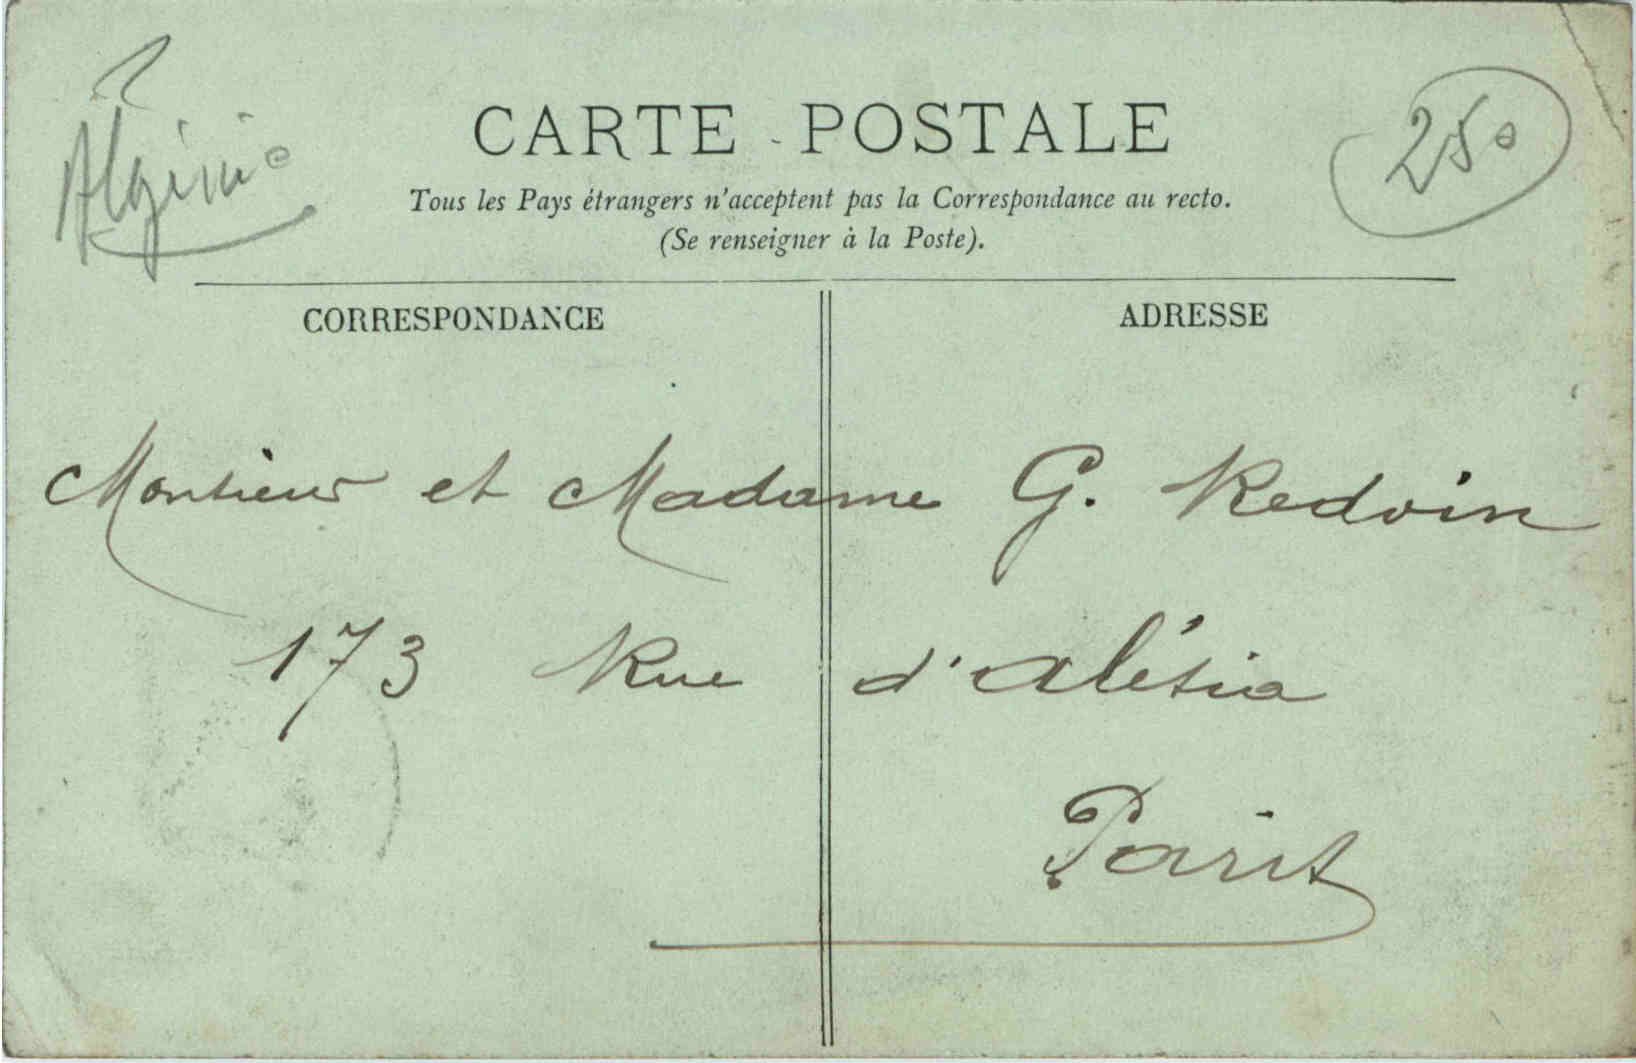 Algérie
CARTE POSTALE
250
Tous les Pays étrangers n'acceptent pas la Correspondance au recto.
(Se renseigner à la Poste).
CORRESPONDANCE
ADRESSE
Monsieur et Madame G. Redoin
173 Rue d'Alésia
Paris